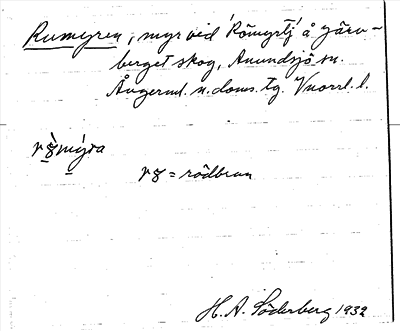 Rumyren, myr vid 'Römyrtj' å Järv-
berget skog, Anundsjö sn.
Ångerml. n. doms. tg. Vnorrl. l.
mýra
= rödbrun
H. A. Söderberg 1932